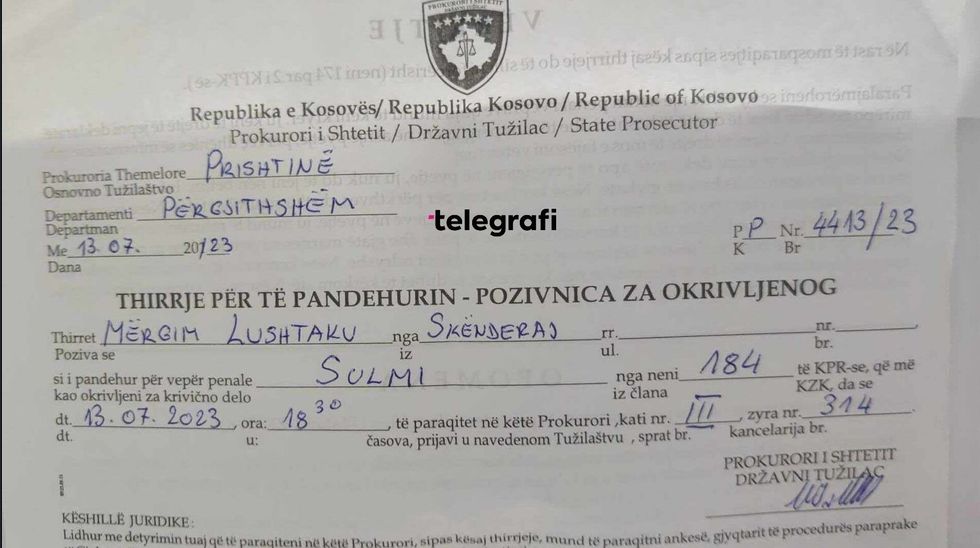 PROKURORI I SHTETIT
DRŽAVNI TUŽILAC
Republika e Kosovës/ Republika Kosovo / Republic of Kosovo
Prokurori i Shtetit / Državni Tužilac / State Prosecutor
Prokuroria Themelore PRISHTINË
Osnovno Tužilaštvo
Departamenti PËRGJITHSHËM
Departman
telegrafi
Me 13.07. 20/23
Dana
P P Nr. 4413/23
K Br
THIRRJE PËR TË PANDEHURIN - POZIVNICA ZA OKRIVLJENOG
Thirret MËRGIM LUSHTAKU nga SKËNDERAJ rr. nr.
Poziva se iz ul. br.
si i pandehur për vepër penale SULMI nga neni 184 të KPR-se, që më
kao okrivljeni za krivično delo iz člana KZK, da se
dt. 13.07.2023, ora: 18 30, të paraqitet në këtë Prokurori ,kati nr. III, zyra nr. 314.
dt. u: časova, prijavi u navedenom Tužilaštvu , sprat br. kancelarija br.
PROKURORI I SHTETIT
DRŽAVNI TUŽILAC
KËSHILLË JURIDIKE:
Lidhur me detyrimin tuaj që të paraqiteni në këtë Prokurori, sipas kësaj thirrjeje, mund të paraqitni ankesë, gjyqtarit të procedurës paraprake